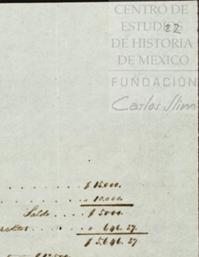 CENTRO DE
ESTUDIOS
22
DE HISTORIA
DE MEXICO
FUNDACIÓN
Carlos Slim
$ 15000.
" 10.000.
Saldo $ 5000.
" 646. 27.
$ 5,646. 27